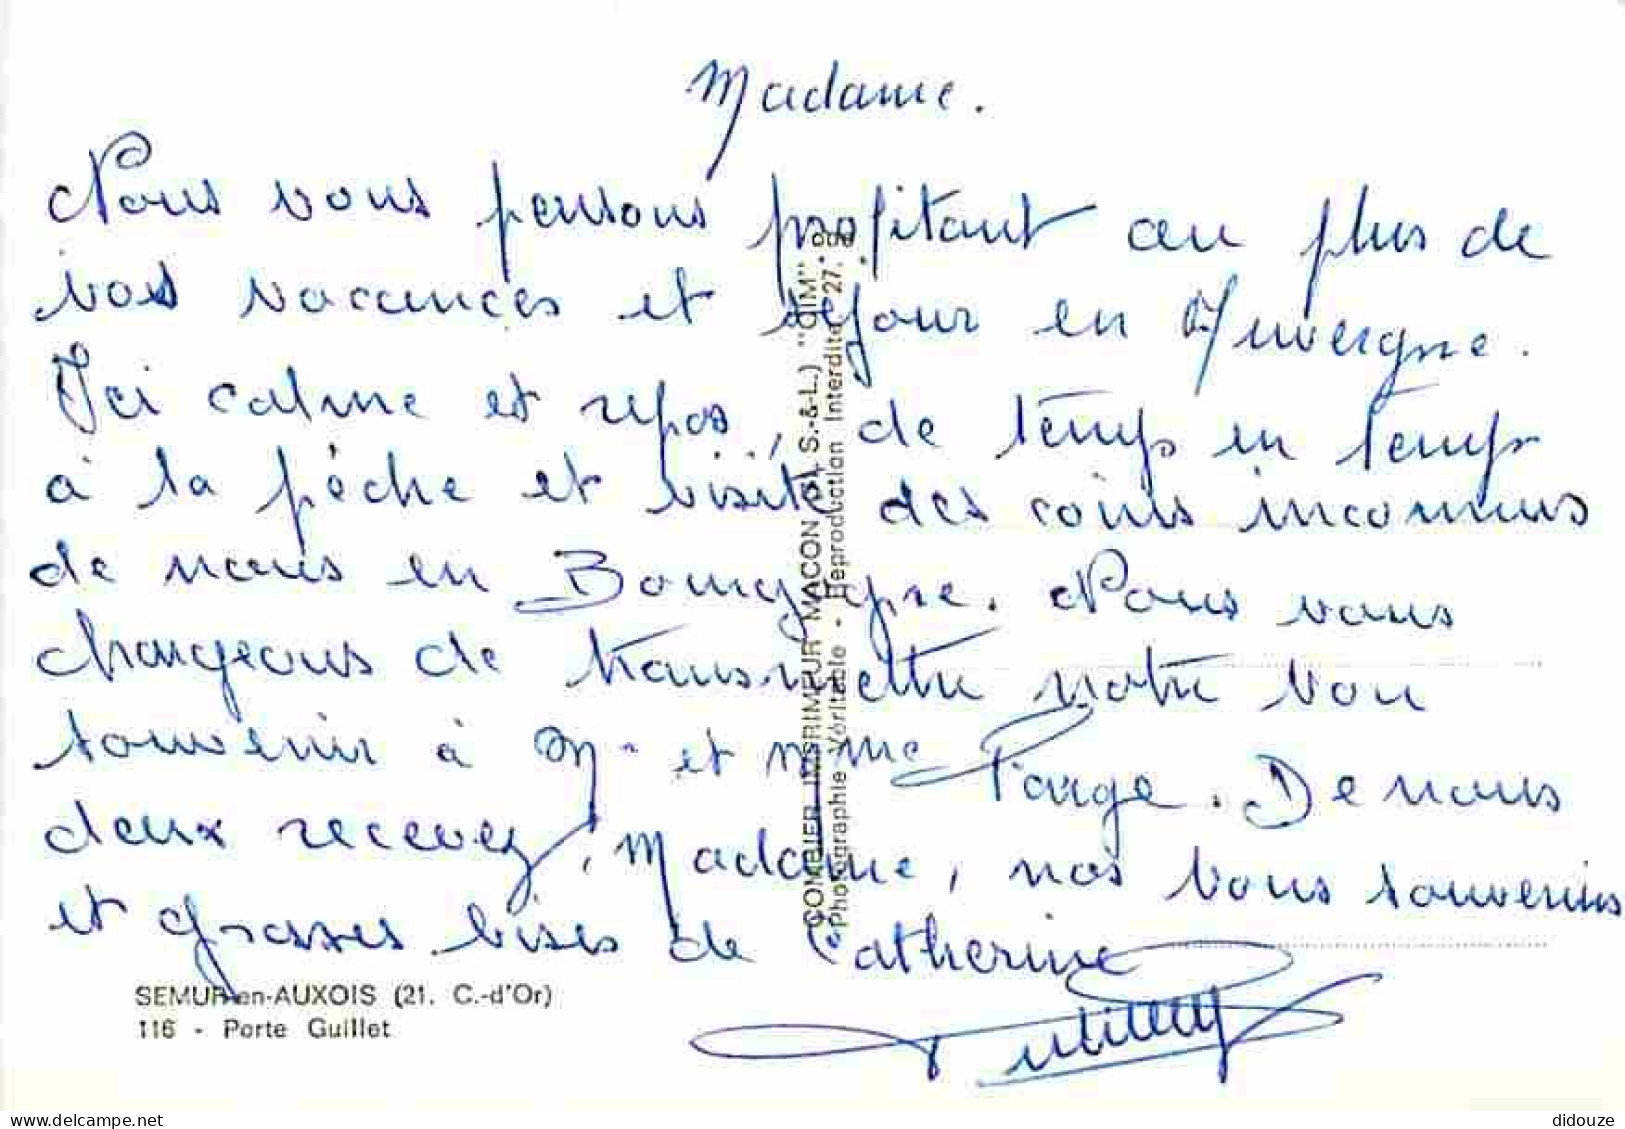 Madame.
Nous vous pensons profitant au plus de
vos vacances et séjour en Auvergne.
Ici calme et repos, de temps en temps
à la pêche et visite des coins inconnus
de nous en Bourgogne. Nous vous
chargeons de transmettre notre bon
souvenir à Mr et Mme Farge. De nous
deux recevez, Madame, nos bons souvenirs
et grosses bises de Catherine
COMBIER IMPRIMEUR MACON (S.-&-L.) "CIM"
Photographie Véritable - Reproduction Interdite
SEMUR-en-AUXOIS (21. C.-d'Or)
116 - Porte Guillet
delcampe.net
didouze